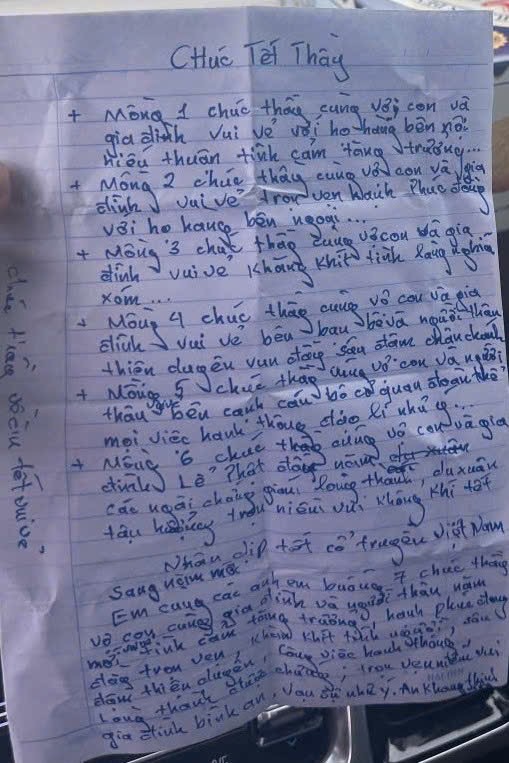 CHúc Tết Thầy
+ Mồng 1 chúc thầy cùng với con và
gia đình vui vẻ với họ hàng bên nội
hiếu thuận tình cảm tăng trưởng...
+ Mồng 2 chúc thầy cùng vợ con và gia
đình vui vẻ trọn vẹn hạnh Phúc đong
với họ hàng bên ngoại...
+ Mồng 3 chúc thầy cùng vợ con và gia
đình vui vẻ khăng khít tình làng nghĩa
xóm...
+ Mồng 4 chúc thầy cùng vợ con và gia
đình vui vẻ bên bạn bè và người thân
thiện duyên vun đắp sâu đậm chan chứa
+ Mồng 5 chúc thầy cùng vợ con và người
thân bên cạnh cán bộ cơ quan đoàn thể
mọi việc hanh thông đào lí như ý...
+ Mồng 6 chúc thầy cùng vợ con và gia
đình Lễ Phật đầu năm
các ngôi lòng thanh, du xuân
trọn niềm vui không khí tết
Nhân dịp tết cổ truyền Việt Nam
sang năm mới
Em cùng các anh em buồng 7 chúc thầy
vợ con cùng gia đình và người thân năm
mới tình cảm tăng trưởng, hạnh phúc đong
đầy trọn vẹn, khăng khít tình người, sâu
đậm thiện duyên, công việc hanh thông,
Lòng thanh trọn vẹn niềm vui
gia đình bình an, vạn sự như ý, An khang thịnh
chúc thầy vô cùng tết vui vẻ